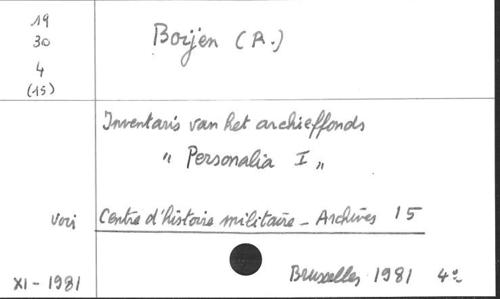 19
30
4
(15)
Boijen (R.)
Inventaris van het archieffonds
" Personalia I "
voir Centre d'histoire militaire - Archives 15
Bruxelles 1981 4°
XI - 1981